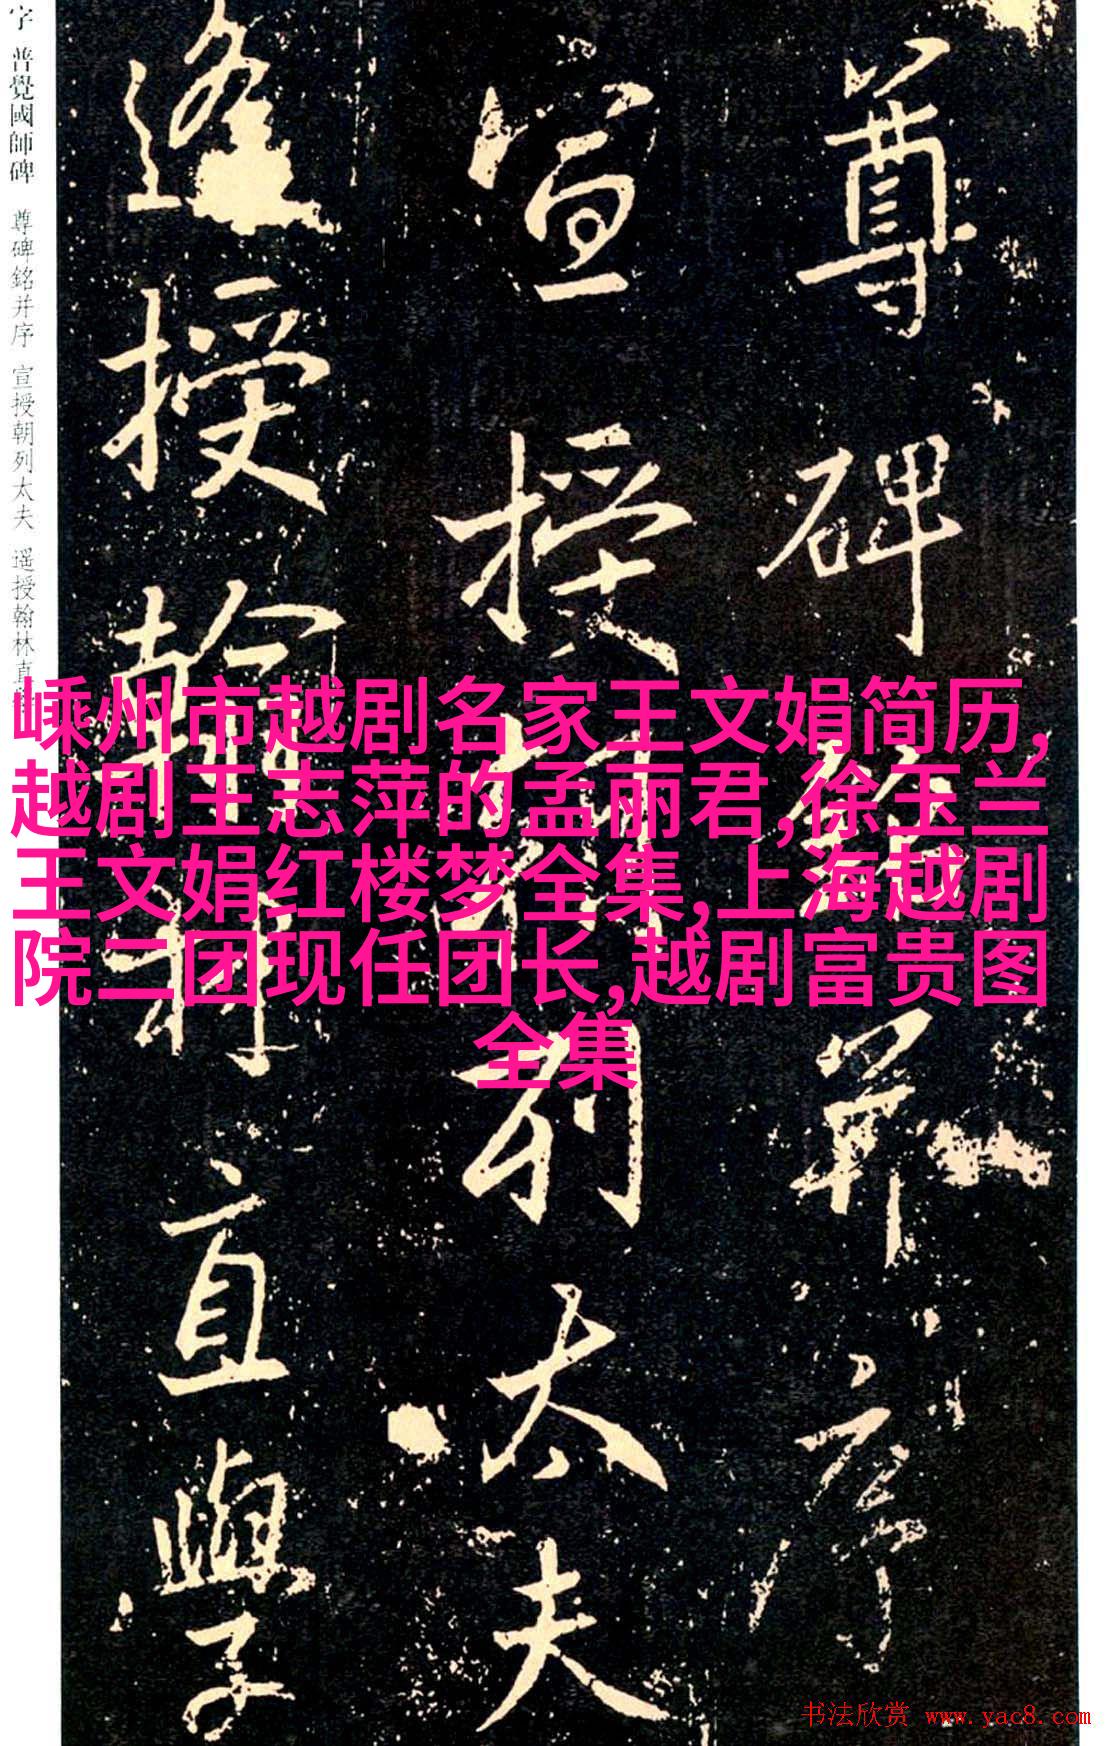 字 普覺國師碑 尊碑銘并序 宣授朝列太夫 遥授翰林直
尊碑銘并序
宣授朝列太夫
遙授翰林直學
嵊州市越剧名家王文娟简历,
越剧王志萍的孟丽君,徐玉兰
王文娟红楼梦全集,上海越剧
院二团现任团长,越剧富贵图
全集
书法欣赏 www.yac8.com